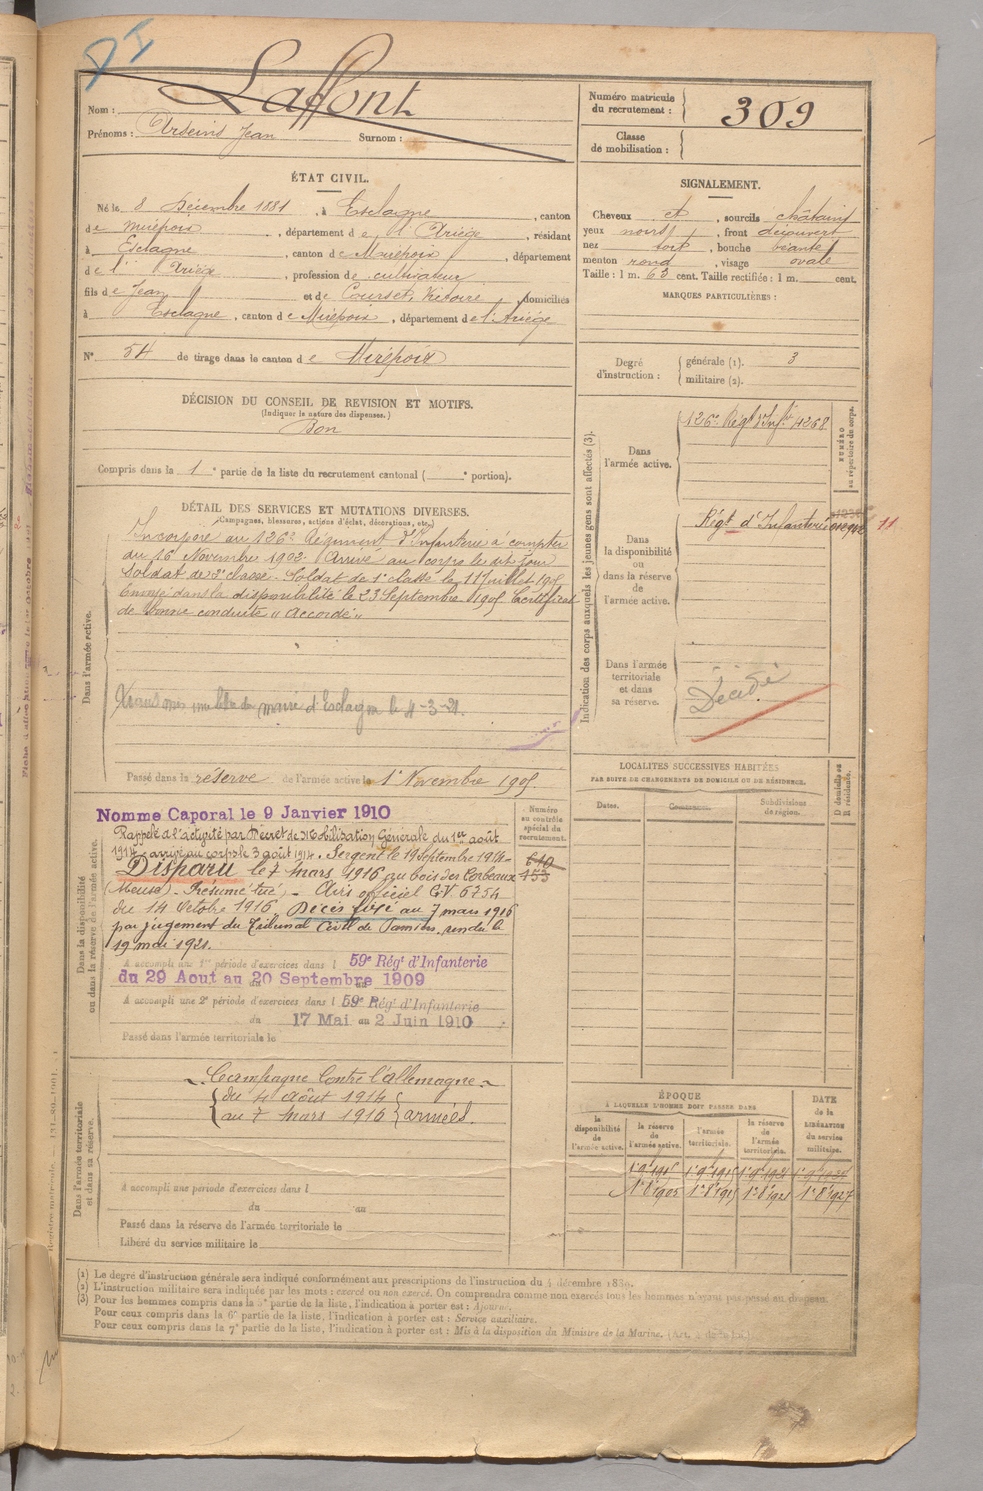 DI
Nom : Laffont
Prénoms : Arseins Jean Surnom :
Numéro matricule du recrutement : 309
Classe de mobilisation :
ÉTAT CIVIL.
Né le 8 Décembre 1881, à Esclagne, canton
de Mirepoix, département de l'Ariège, résidant
à Esclagne, canton de Mirepoix, département
de l'Ariège, profession de cultivateur
fils de Jean et de Courset, Victoire domiciliés
à Esclagne, canton de Mirepoix, département de l'Ariège
N° 54 de tirage dans le canton de Mirepoix
SIGNALEMENT.
Cheveux et, sourcils châtains
yeux noirs, front découvert
nez fort, bouche béante
menton rond, visage ovale
Taille : 1 m. 63 cent. Taille rectifiée : 1 m. cent.
MARQUES PARTICULIÈRES :
Degré d'instruction : générale (1). 3
militaire (2).
DÉCISION DU CONSEIL DE REVISION ET MOTIFS.
(Indiquer la nature des dispenses.)
Bon
Compris dans la 1e partie de la liste du recrutement cantonal ( e portion).
DÉTAIL DES SERVICES ET MUTATIONS DIVERSES.
(Campagnes, blessures, actions d'éclat, décorations, etc.)
Dans l'armée active.
Incorporé au 126e Régiment d'Infanterie à compter
du 16 Novembre 1902. Arrivé au corps le dit jour
Soldat de 2e classe. Soldat de 1e classe le 11 Juillet 1905
Envoyé dans la disponibilité le 23 Septembre 1905 Certificat
de bonne conduite „Accordé„
mairie d'Esclagne le 4-3-21.
Passé dans la réserve de l'armée active le 1er Novembre 1905
Indication des corps auxquels les jeunes gens sont affectés (3).
NUMÉRO au répertoire du corps.
Dans l'armée active.
126e Régt d'Infie 4268
Dans la disponibilité ou dans la réserve de l'armée active.
Régt d'Infanterie 11
Dans l'armée territoriale et dans sa réserve.
Décédé
LOCALITÉS SUCCESSIVES HABITÉES
PAR SUITE DE CHANGEMENTS DE DOMICILE OU DE RÉSIDENCE.
Dates. Communes. Subdivisions de région. D domicile ou R résidence.
Dans la disponibilité ou dans la réserve de l'armée active.
Numéro au contrôle spécial du recrutement.
610
153
Nomme Caporal le 9 Janvier 1910
Rappelé à l'activité par Décret de Mobilisation Générale du 1er août
1914 - arrivé au corps le 3 août 1914. Sergent le 19 Septembre 1914 -
Disparu le 7 mars 1916 au bois des Corbeaux
(Meuse) - Présumé tué - Avis officiel GV 6254
du 14 Octobre 1916 Décès fixé au 7 mars 1916
par jugement du Tribunal Civil de Pamiers, rendu le
19 mai 1921.
A accompli une 1re période d'exercices dans l 59e Régt d'Infanterie
du 29 Aout au 20 Septembre 1909
A accompli une 2e période d'exercices dans l 59e Régt d'Infanterie
du 17 Mai au 2 Juin 1910
Passé dans l'armée territoriale le
Dans l'armée territoriale et dans sa réserve.
Campagne contre l'Allemagne
du 4 août 1914
au 7 mars 1916 armées.
A accompli une période d'exercices dans l
du au
Passé dans la réserve de l'armée territoriale le
Libéré du service militaire le
ÉPOQUE
À LAQUELLE L'HOMME DOIT PASSER DANS
la disponibilité de l'armée active.
la réserve de l'armée active.
l'armée territoriale.
la réserve de l'armée territoriale.
DATE de la LIBÉRATION du service militaire.
1er 8 1905 1er 8 1915 1er 8 1921 1er 8 1927
(1) Le degré d'instruction générale sera indiqué conformément aux prescriptions de l'instruction du 4 décembre 1889.
(2) L'instruction militaire sera indiquée par les mots : exercé ou non exercé. On comprendra comme non exercés tous les hommes n'ayant pas passé au drapeau.
(3) Pour les hommes compris dans la 5e partie de la liste, l'indication à porter est : Ajourné.
Pour ceux compris dans la 6e partie de la liste, l'indication à porter est : Service auxiliaire.
Pour ceux compris dans la 7e partie de la liste, l'indication à porter est : Mis à la disposition du Ministre de la Marine.